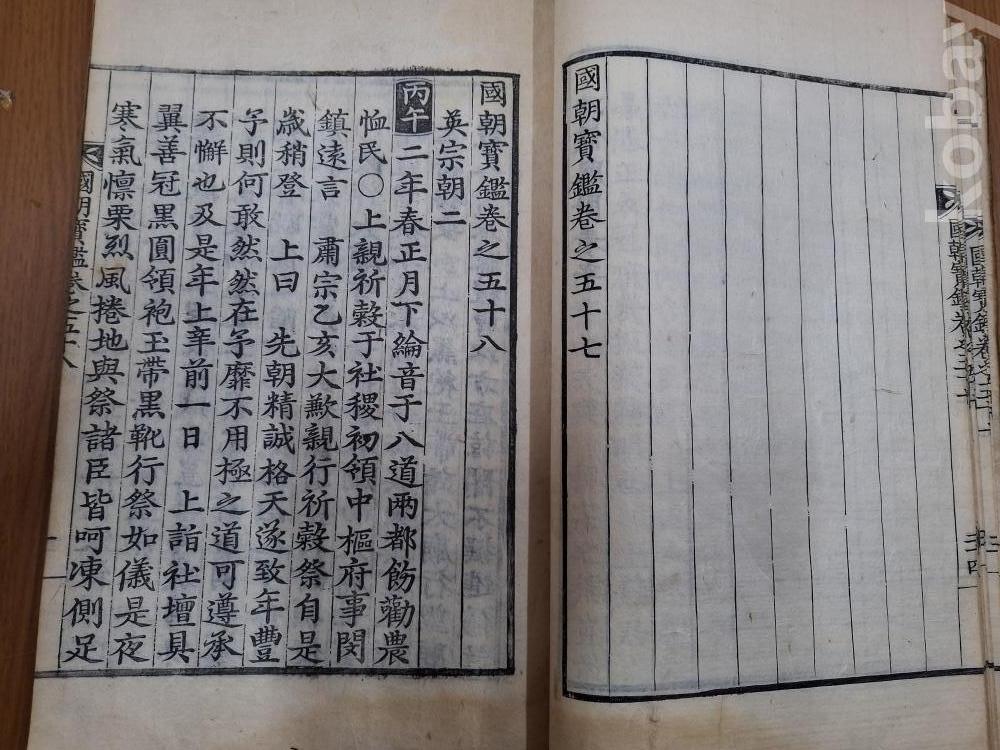 國朝寶鑑卷之五十七
國朝寶鑑卷之五十八
英宗朝二
丙午二年春正月下綸音于八道兩都飭勸農
恤民○上親祈穀于社稷初領中樞府事閔
鎮遠言 肅宗乙亥大歉親行祈穀祭自是
歲稍登 上曰 先朝精誠格天遂致年豐
予則何敢然然在予靡不用極之道可遵承
不懈也及是年上辛前一日 上詣社壇具
翼善冠黑圓領袍玉帶黑靴行祭如儀是夜
寒氣懍栗烈風捲地與祭諸臣皆呵凍側足
國朝寶鑑卷之五十八
一
國朝寶鑑卷之五十
kobay